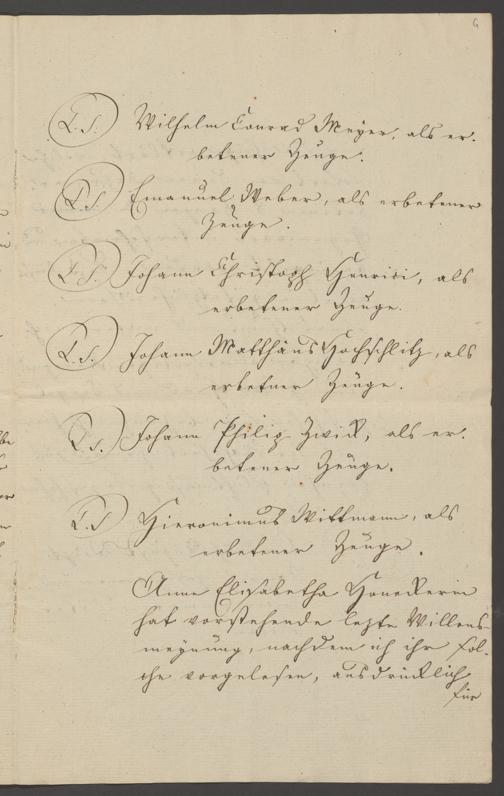 6
L.S. Wilhelm Conrad Meyer, als er-
betener Zeuge.
L.S. Emanuel Weber, als erbetener
Zeuge.
L.S. Johann Christoph Henrici, als
erbetener Zeuge.
L.S. Johann Matthäus Hochschlitz, als
erbetner Zeuge.
L.S. Johann Philip Zwick, als er-
betener Zeuge.
L.S. Hieronimus Wittmann, als
erbetener Zeuge.
Anna Elisabetha Honeckerin
hat vorstehende lezte Willens
meynung, nachdem ich ihr sol-
che vorgelesen, ausdrücklich
für